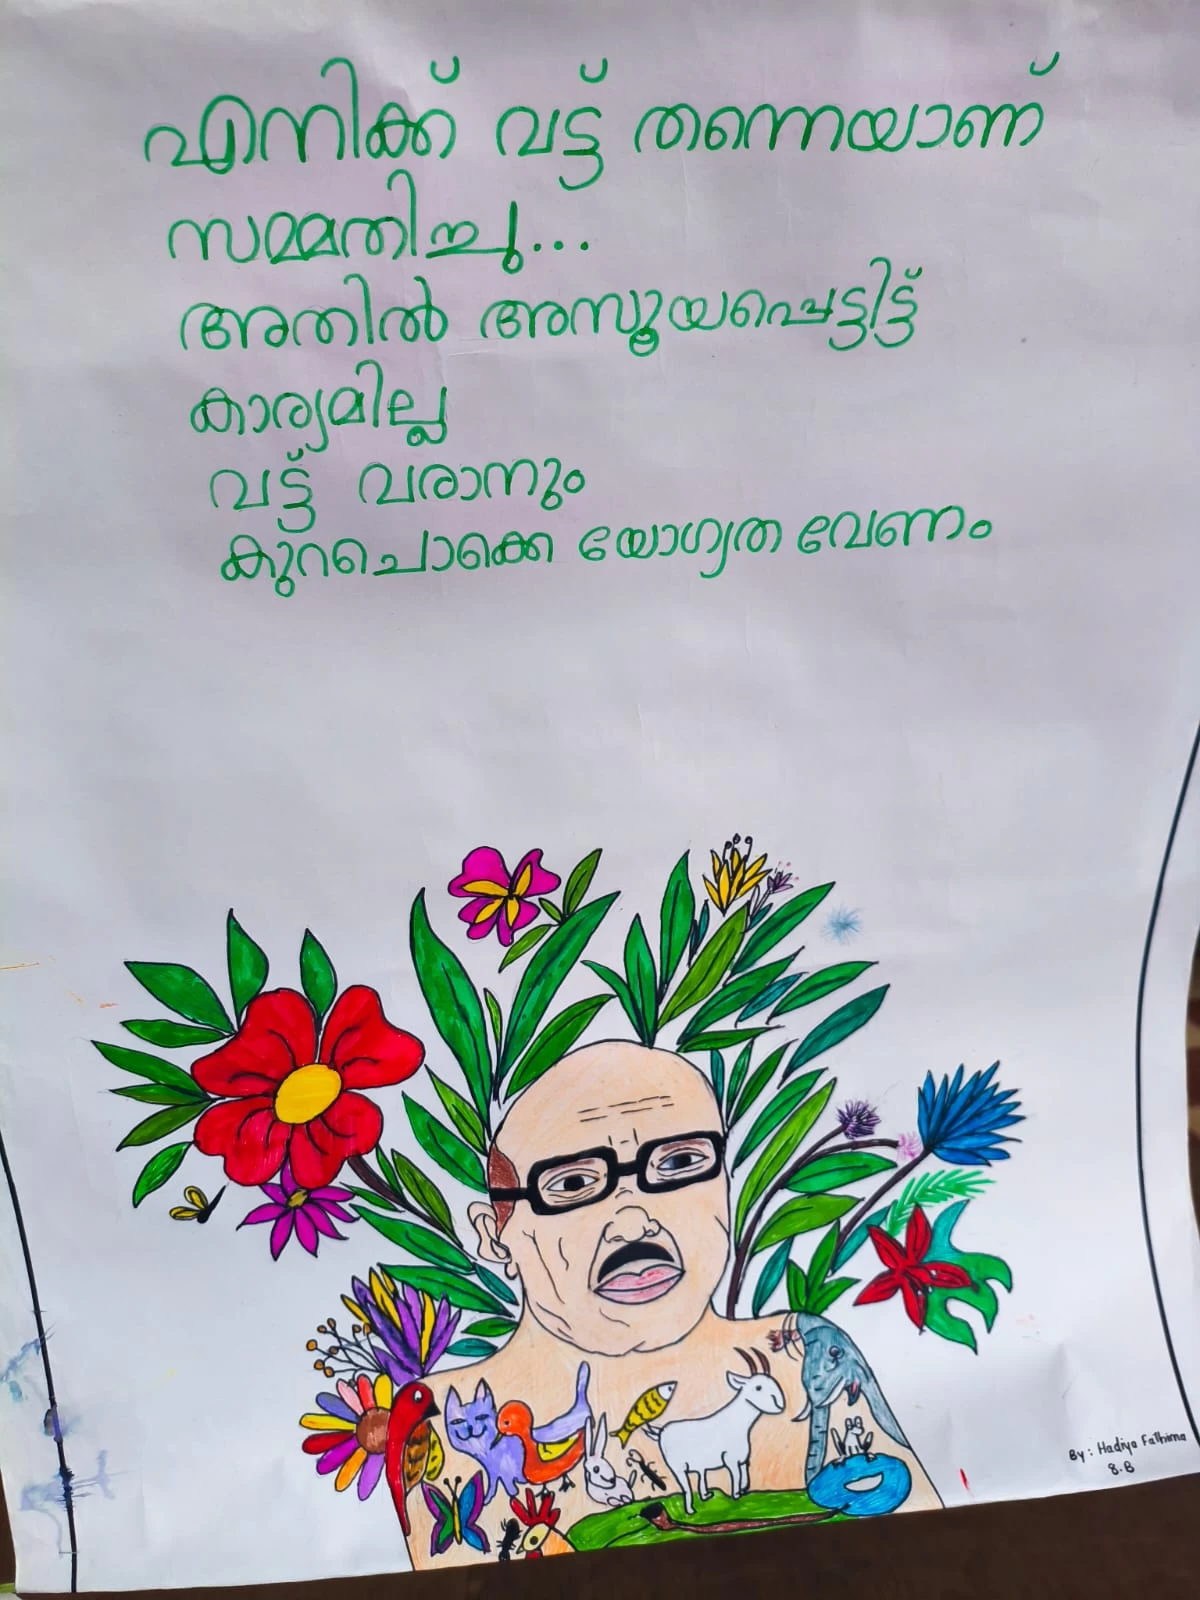 എനിക്ക് വട്ട് തന്നെയാണ്
സമ്മതിച്ചു...
അതിൽ അസൂയപ്പെട്ടിട്ട്
കാര്യമില്ല
വട്ട് വരാനും
കുറചൊക്കെ യോഗ്യത വേണം
By: Hadiya Fathima
8.B